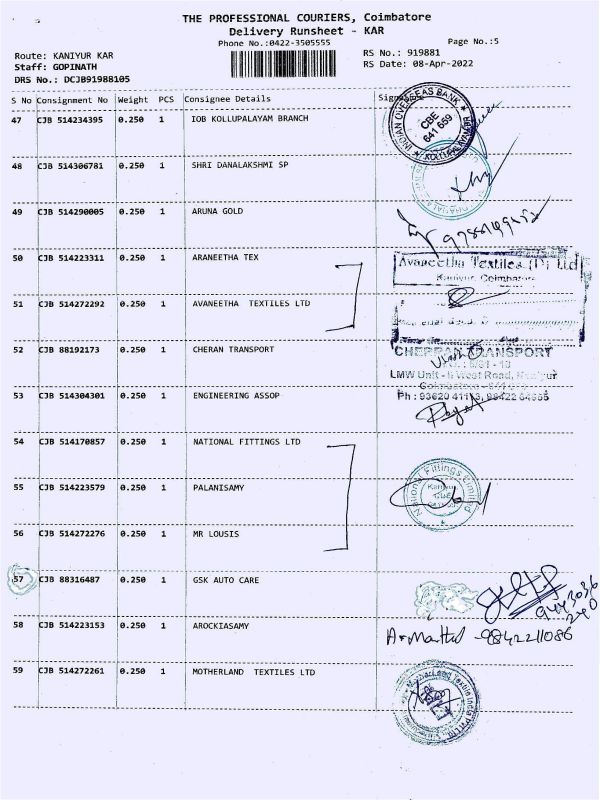 THE PROFESSIONAL COURIERS, Coimbatore
Delivery Runsheet - KAR
Phone No.:0422-3505555
Page No.:5
Route: KANIYUR KAR
RS No.: 919881
Staff: GOPINATH
RS Date: 08-Apr-2022
DRS No.: DCJB91988105
S No Consignment No Weight PCS Consignee Details
47 CJB 514234395 0.250 1 IOB KOLLUPALAYAM BRANCH
INDIAN OVERSEAS BANK
CBE
641 659
48 CJB 514306781 0.250 1 SHRI DANALAKSHMI SP
49 CJB 514290005 0.250 1 ARUNA GOLD
50 CJB 514223311 0.250 1 ARANEETHA TEX
Avaneetha Textiles (P) Ltd
Kaniyur, Coimbatore
51 CJB 514272292 0.250 1 AVANEETHA TEXTILES LTD
52 CJB 88192173 0.250 1 CHERAN TRANSPORT
CHERRAN TRANSPORT
LMW Unit - II West Road, Kaniyur
53 CJB 514304301 0.250 1 ENGINEERING ASSOP
54 CJB 514170857 0.250 1 NATIONAL FITTINGS LTD
National Fittings Limited
55 CJB 514223579 0.250 1 PALANISAMY
56 CJB 514272276 0.250 1 MR LOUSIS
57 CJB 88316487 0.250 1 GSK AUTO CARE
58 CJB 514223153 0.250 1 AROCKIASAMY
9842211086
59 CJB 514272261 0.250 1 MOTHERLAND TEXTILES LTD